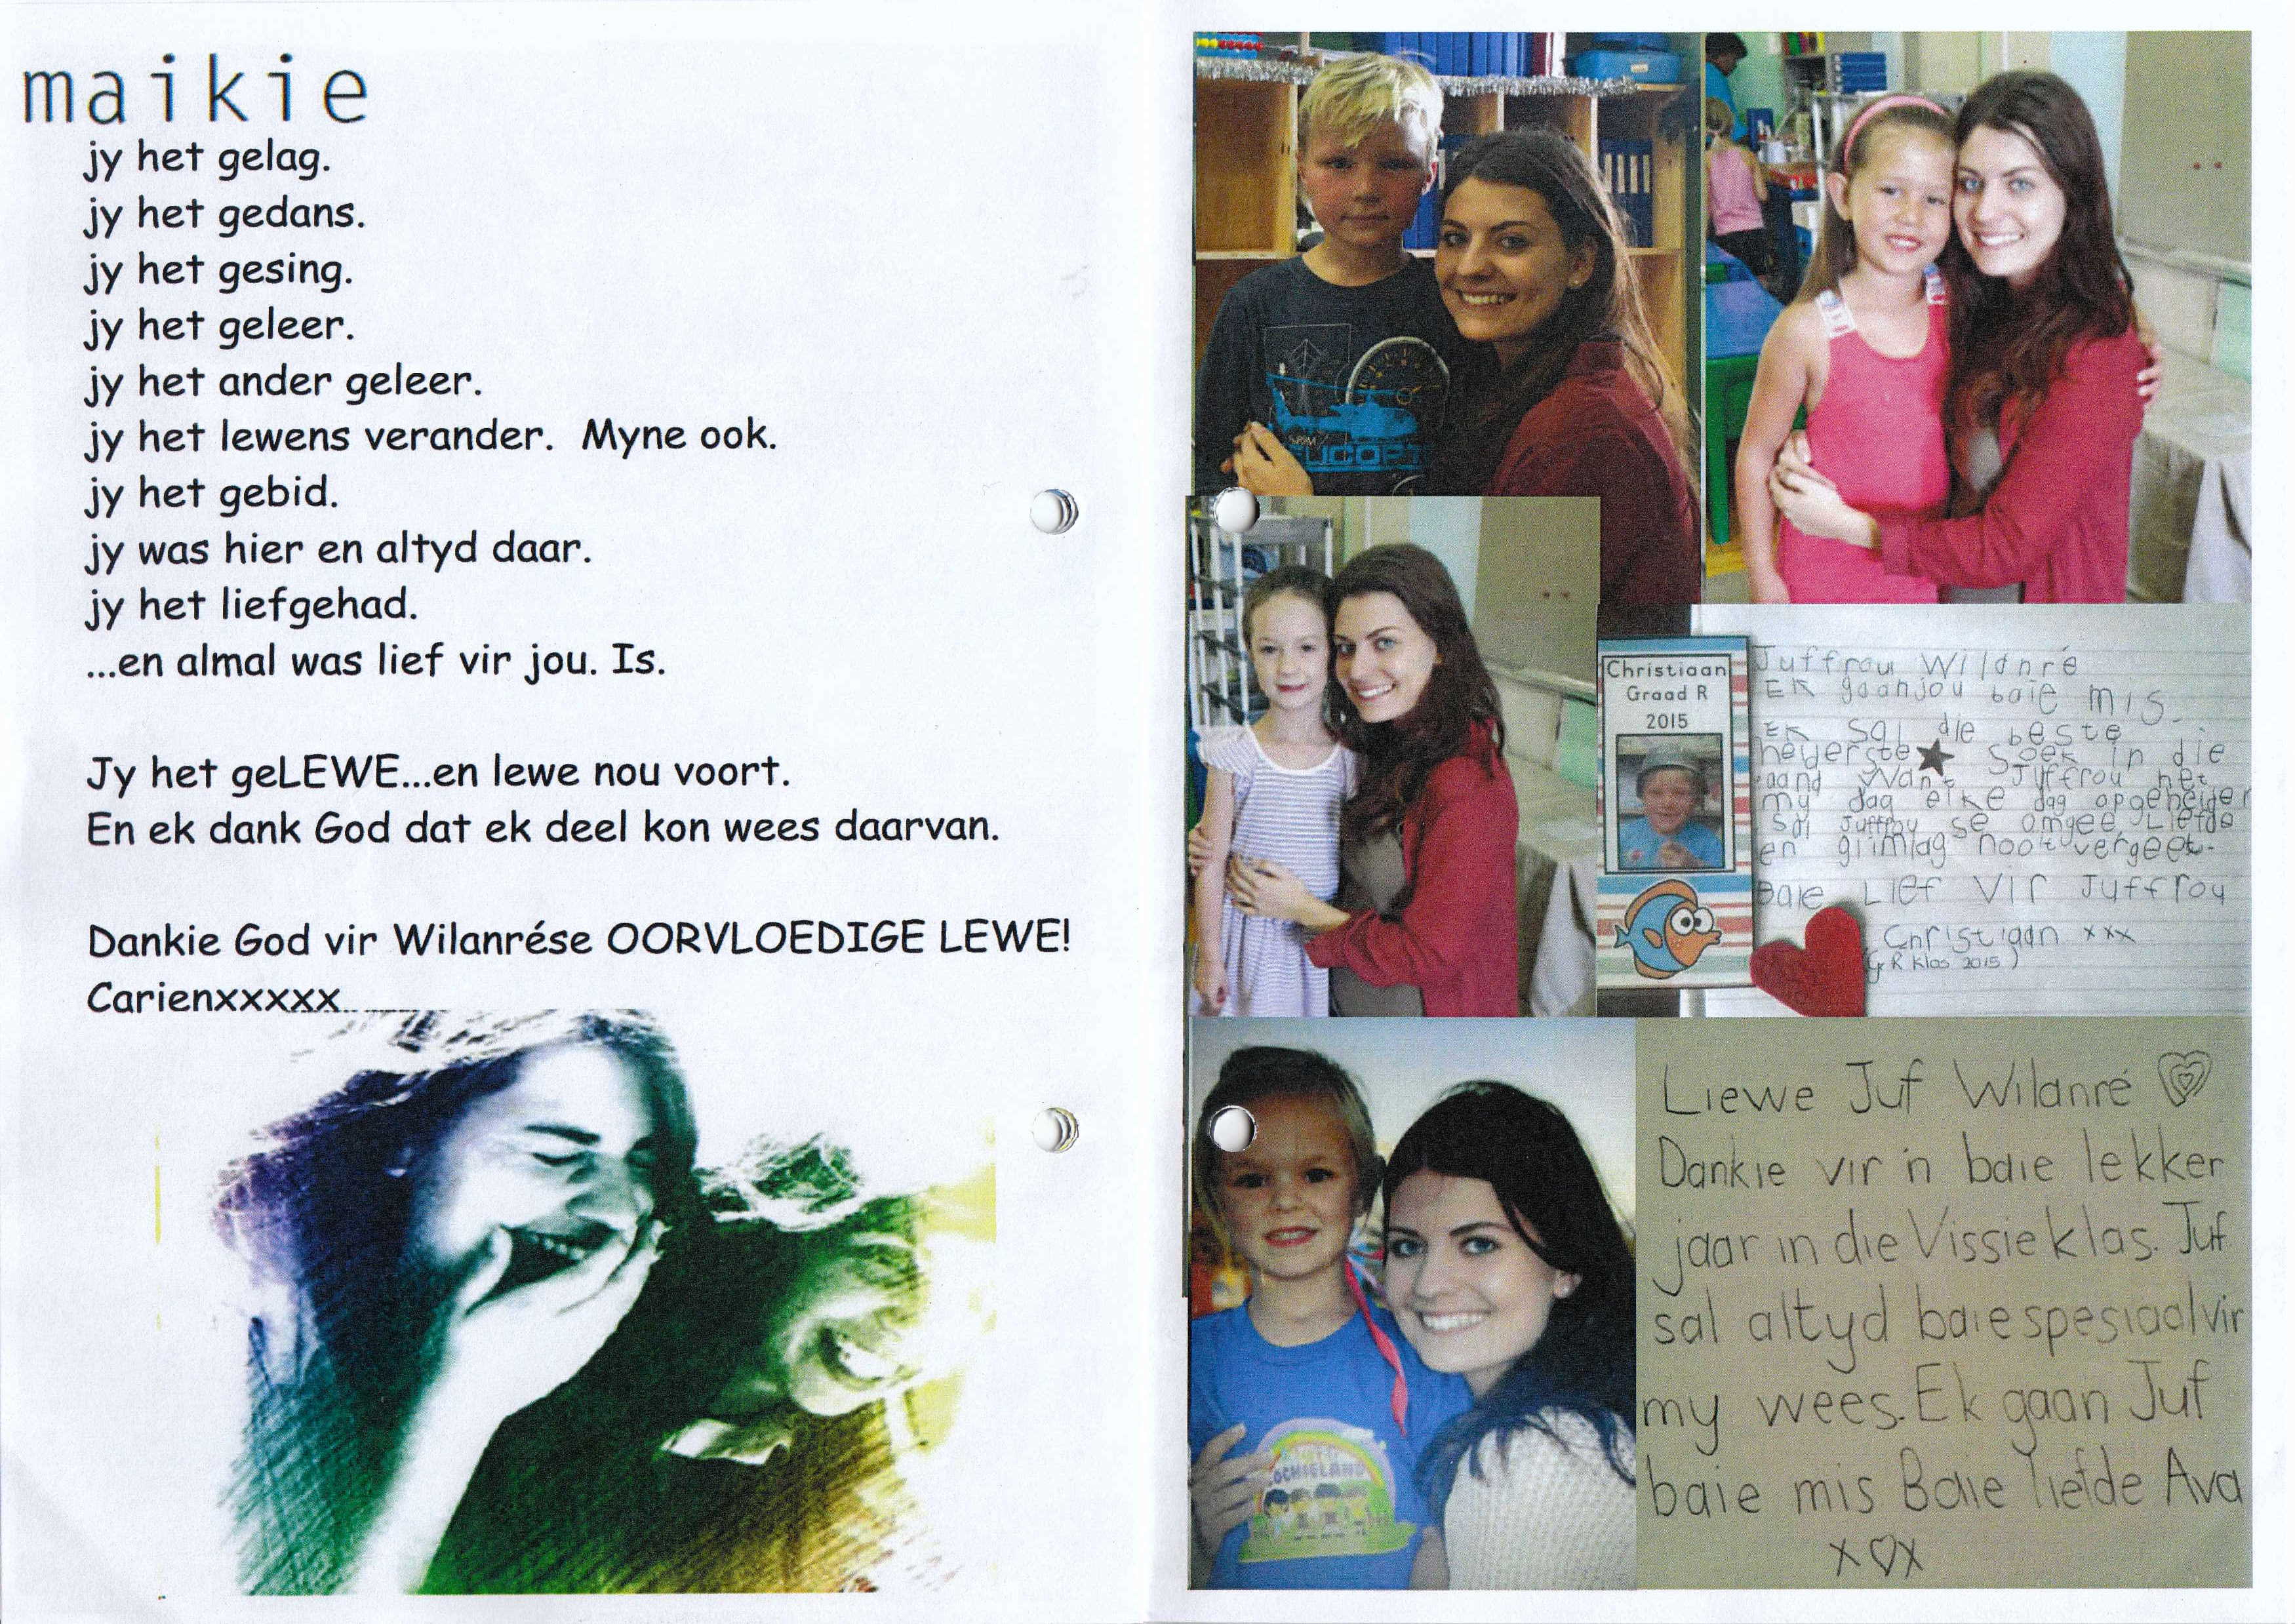 maikie
jy het gelag.
jy het gedans.
jy het gesing.
jy het geleer.
jy het ander geleer.
jy het lewens verander. Myne ook.
jy het gebid.
jy was hier en altyd daar.
jy het liefgehad.
...en almal was lief vir jou. Is.
Jy het geLEWE...en lewe nou voort.
En ek dank God dat ek deel kon wees daarvan.
Dankie God vir Wilanrése OORVLOEDIGE LEWE!
Carienxxxxx
Christiaan
Graad R
2015
Juffrou Wilanré
Ek gaan jou baie mis.
Ek sal die beste
helderste soek in die
aand want Juffrou het
my dag elke dag opgehelder
sal Juffrou se omgee, Liefde
en glimlag nooit vergeet.
Baie Lief vir Juffrou
Christiaan xxx
(Gr R klas 2015)
Liewe Juf Wilanré
Dankie vir 'n baie lekker
jaar in die Vissieklas. Juf.
sal altyd baie spesiaal vir
my wees. Ek gaan Juf
baie mis Baie liefde Ava
x♡x